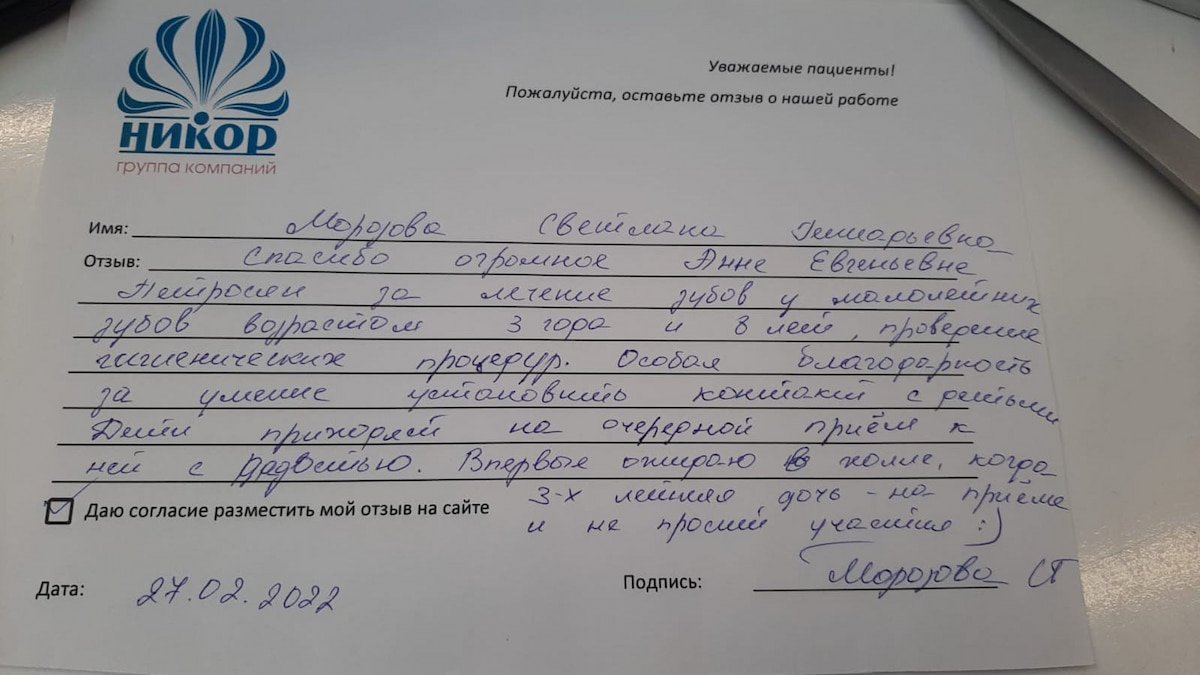 НИКОР
группа компаний
Уважаемые пациенты!
Пожалуйста, оставьте отзыв о нашей работе
Имя: Морозова Светлана
Отзыв: Спасибо огромное Анне Евгеньевне
Петросян за лечение зубов у малолетних
зубов возрастом 3 года и 8 лет, проведение
гигиенических процедур. Особая благодарность
за умение установить контакт с детьми
Дети приходят на очередной приём к
ней с радостью. Впервые ожидаю в холле, когда
3-х летняя дочь - на приёме
и не просит участия :)
Даю согласие разместить мой отзыв на сайте
Дата: 27.02.2022
Подпись: Морозова СГ